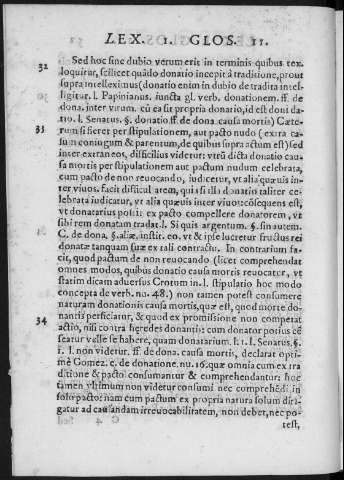 LEX. 1. GLOS. 11.
32 Sed hoc sine dubio verum erit in terminis quibus tex.
loquitur, scilicet quãdo donatio incepit à traditione, prout
supra intelleximus (donatio enim in dubio de tradita intel-
ligitur. l. Papinianus. iuncta gl. verb. donationem. ff. de
dona. inter virum. cũ ea sit propria donatio, id est doni da-
tio. l. Senatus. §. donatio. ff. de dona. causa mortis) Cæte-
33 rum si fieret per stipulationem, aut pacto nudo (extra ca-
sum coniugum & parentum, de quibus supra actum est) sed
inter extraneos, difficilius videtur: vtrũ dicta donatio cau-
sa mortis per stipulationem aut pactum nudum celebrata,
cum pacto de non reuocando, iudicetur, vt alia quæuis in-
ter viuos. facit difficultatem, quia si illa donatio taliter ce-
lebrata iudicatur, vt alia quæuis inter viuos: cõsequens est,
vt donatarius possit ex pacto compellere donatorem, vt
sibi rem donatam tradat. l. Si quis argentum. §. sin autem.
C. de dona. §. aliæ. instit. eo. vt & ipse lucretur fructus rei
donatæ tanquam suæ ex tali contractu. In contrarium fa-
cit, quod pactum de non reuocando (licet comprehendat
omnes modos, quibus donatio causa mortis reuocatur, vt
statim dicam aduersus Crotum in l. stipulatio hoc modo
concepta de verb. nu. 48.) non tamen potest consumere
naturam donationis causa mortis, quæ est, quod morte do-
nantis perficiatur, & quod ex promissione non competat
34 actio, nisi contra hęredes donantis: cum donator potius cẽ
seatur velle se habere, quam donatarium. l. 1. l. Senatus. §.
1. l. non videtur. ff. de dona. causa mortis, declarat opti-
mè Gomez. c. de donatione. nu. 16. quæ omnia cum ex tra
ditione & pacto consumantur & comprehendantur: hoc
tamen vltimum non videtur consumi nec comprehẽdi in
solo pacto: nam cum pactum ex propria natura solum diri-
gatur ad causandam irreuocabilitatem, non debet, nec po-
test,